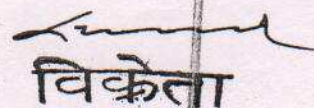 विक्रेता